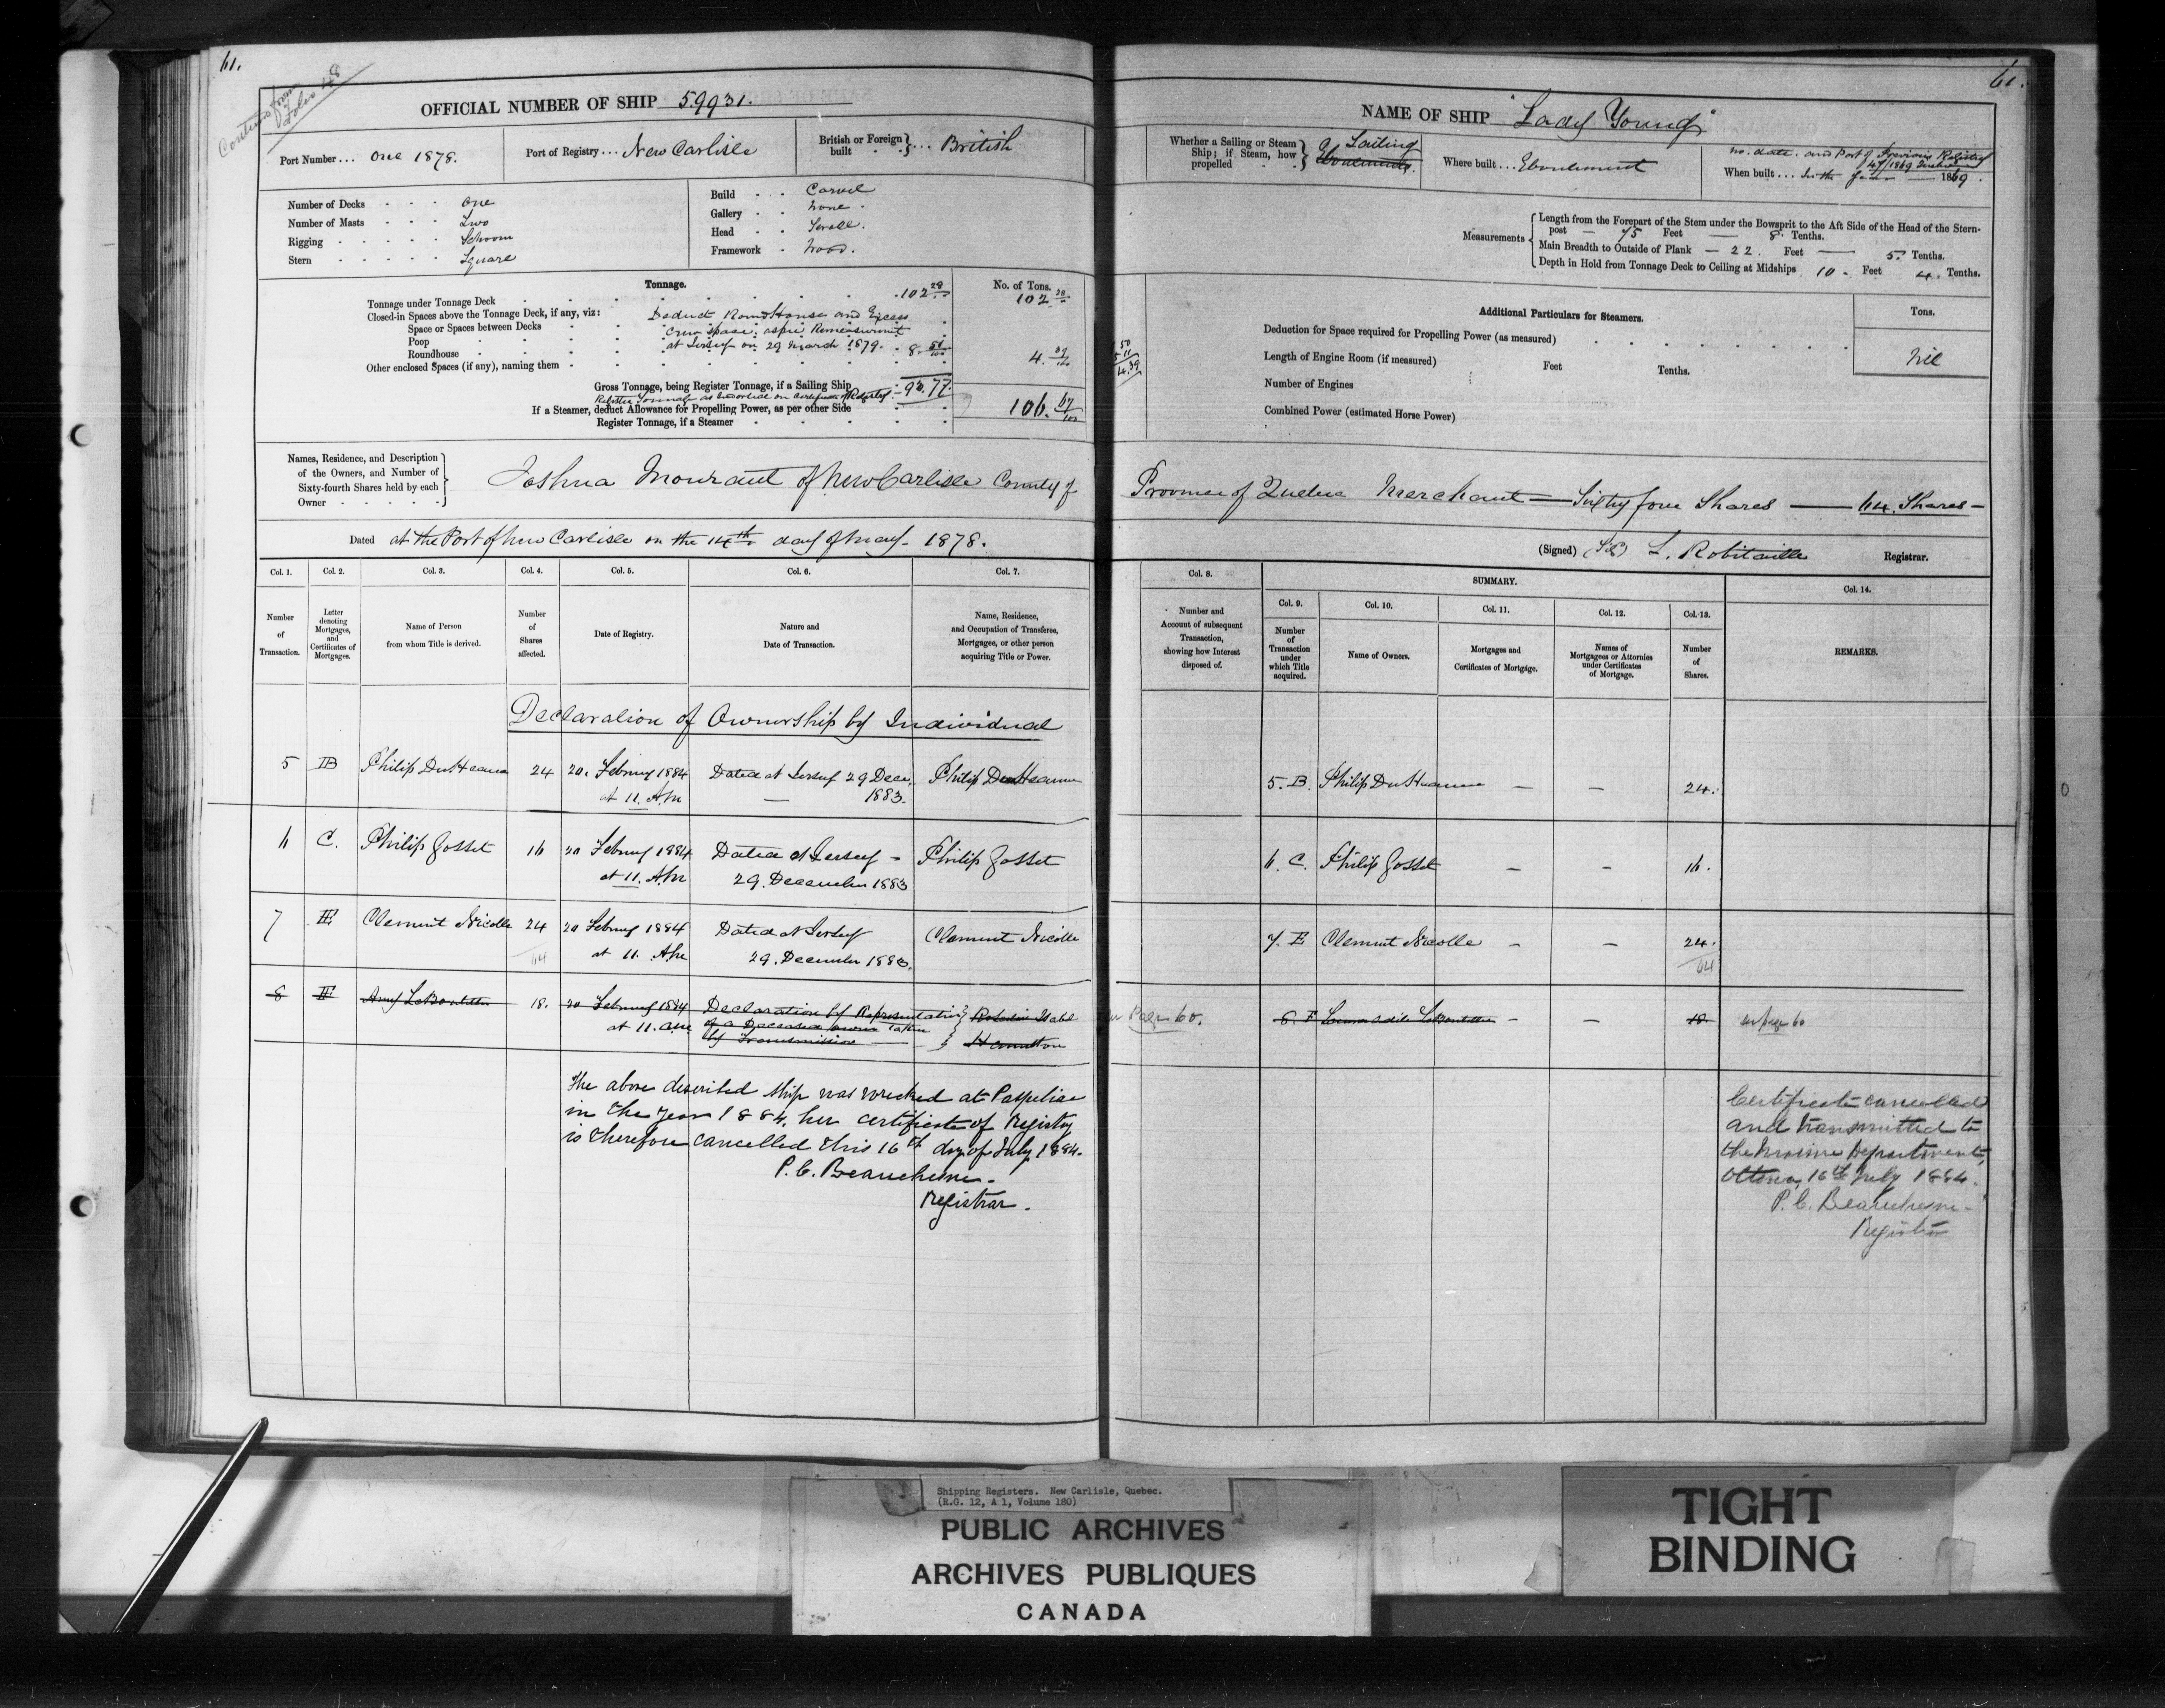 61.
61.
Continued from
Folio 48
OFFICIAL NUMBER OF SHIP 59931.
NAME OF SHIP "Lady Young"
Port Number... One 1878.
Port of Registry... New Carlisle
British or Foreign built ... British
Whether a Sailing or Steam Ship; if Steam, how propelled
a Sailing
Where built... Eboulement
No. date. and Port of Previous Registry
47/1869
When built... In the year 1869.
Number of Decks - - - One
Number of Masts - - - Two
Rigging - - - Schoon
Stern - - - Square
Build - - - Carvel
Gallery - - None.
Head - - Scroll.
Framework - Wood.
Measurements
Length from the Forepart of the Stem under the Bowsprit to the Aft Side of the Head of the Stern-
post — 75 Feet — 8 Tenths.
Main Breadth to Outside of Plank — 22. Feet — 5. Tenths.
Depth in Hold from Tonnage Deck to Ceiling at Midships 10 - Feet 4. Tenths.
Tonnage.
No. of Tons.
Tonnage under Tonnage Deck 102 28
102 28
Closed-in Spaces above the Tonnage Deck, if any, viz:
Deduct Round House and Excess
Space or Spaces between Decks
Crew space, as per Remeasurment
Poop
at Jersey on 29 March 1879.
Roundhouse
4. 39/100
Other enclosed Spaces (if any), naming them
Gross Tonnage, being Register Tonnage, if a Sailing Ship
93.77
Register Tonnage as inserted on Certificate of Registry
If a Steamer, deduct Allowance for Propelling Power, as per other Side
106. 67/100
Register Tonnage, if a Steamer
Additional Particulars for Steamers.
Tons.
Deduction for Space required for Propelling Power (as measured)
Nil
Length of Engine Room (if measured) Feet Tenths.
Number of Engines
Combined Power (estimated Horse Power)
Names, Residence, and Description
of the Owners, and Number of
Sixty-fourth Shares held by each
Owner
Joshua Mourant of New Carlisle County of
Province of Quebec Merchant — Sixty four Shares — 64 Shares —
Dated at the Port of New Carlisle on the 14th day of May - 1878.
(Signed) L. Robitaille Registrar.
Col. 1. Col. 2. Col. 3. Col. 4. Col. 5. Col. 6. Col. 7.
Col. 8. SUMMARY. Col. 14.
Col. 9. Col. 10. Col. 11. Col. 12. Col. 13.
Number of Transaction.
Letter denoting Mortgages, and Certificates of Mortgages.
Name of Person from whom Title is derived.
Number of Shares affected.
Date of Registry.
Nature and Date of Transaction.
Name, Residence, and Occupation of Transferee, Mortgagee, or other person acquiring Title or Power.
Number and Account of subsequent Transaction, showing how Interest disposed of.
Number of Transaction under which Title acquired.
Name of Owners.
Mortgages and Certificates of Mortgage.
Names of Mortgagees or Attornies under Certificates of Mortgage.
Number of Shares.
REMARKS.
Declaration of Ownership by Individual
5 B Philip DuHeaume 24 20. Februay 1884 Dated at Jersey 29 Dece. Philip DuHeaume
at 11. AM — 1883.
5. B. Philip DuHeaume — — 24.
6 C. Philip Gosset 16 20 Februay 1884 Dated at Jersey - Philip Gosset
at 11. AM 29. December 1883
6. C. Philip Gosset — — 16.
7 E Clement Nicolle 24 20 Februay 1884 Dated at Jersey Clement Nicolle
64 at 11. AM 29. December 1883.
7. E Clement Nicolle — — 24.
64
8 F Amy LeBoutillier 18. 20 Februay 1884 Declaration by Representative
at 11. AM of a Deceased owner taken
by Transmission — Hamilton
Page 60.
8. F LeBoutillier — — 18. see page 60
The above described ship was wrecked at Paspebiac
in the year 1884, her certificate of Registry
is therefore cancelled this 16th day of July 1884.
P. C. Beauchesne.
Registrar.
Certificate cancelled
and transmitted to
the Marine Department,
Ottawa, 16th July 1884.
P. C. Beauchesne.
Registrar
Shipping Registers. New Carlisle, Quebec.
(R.G. 12, A 1, Volume 180)
PUBLIC ARCHIVES
ARCHIVES PUBLIQUES
CANADA
TIGHT
BINDING